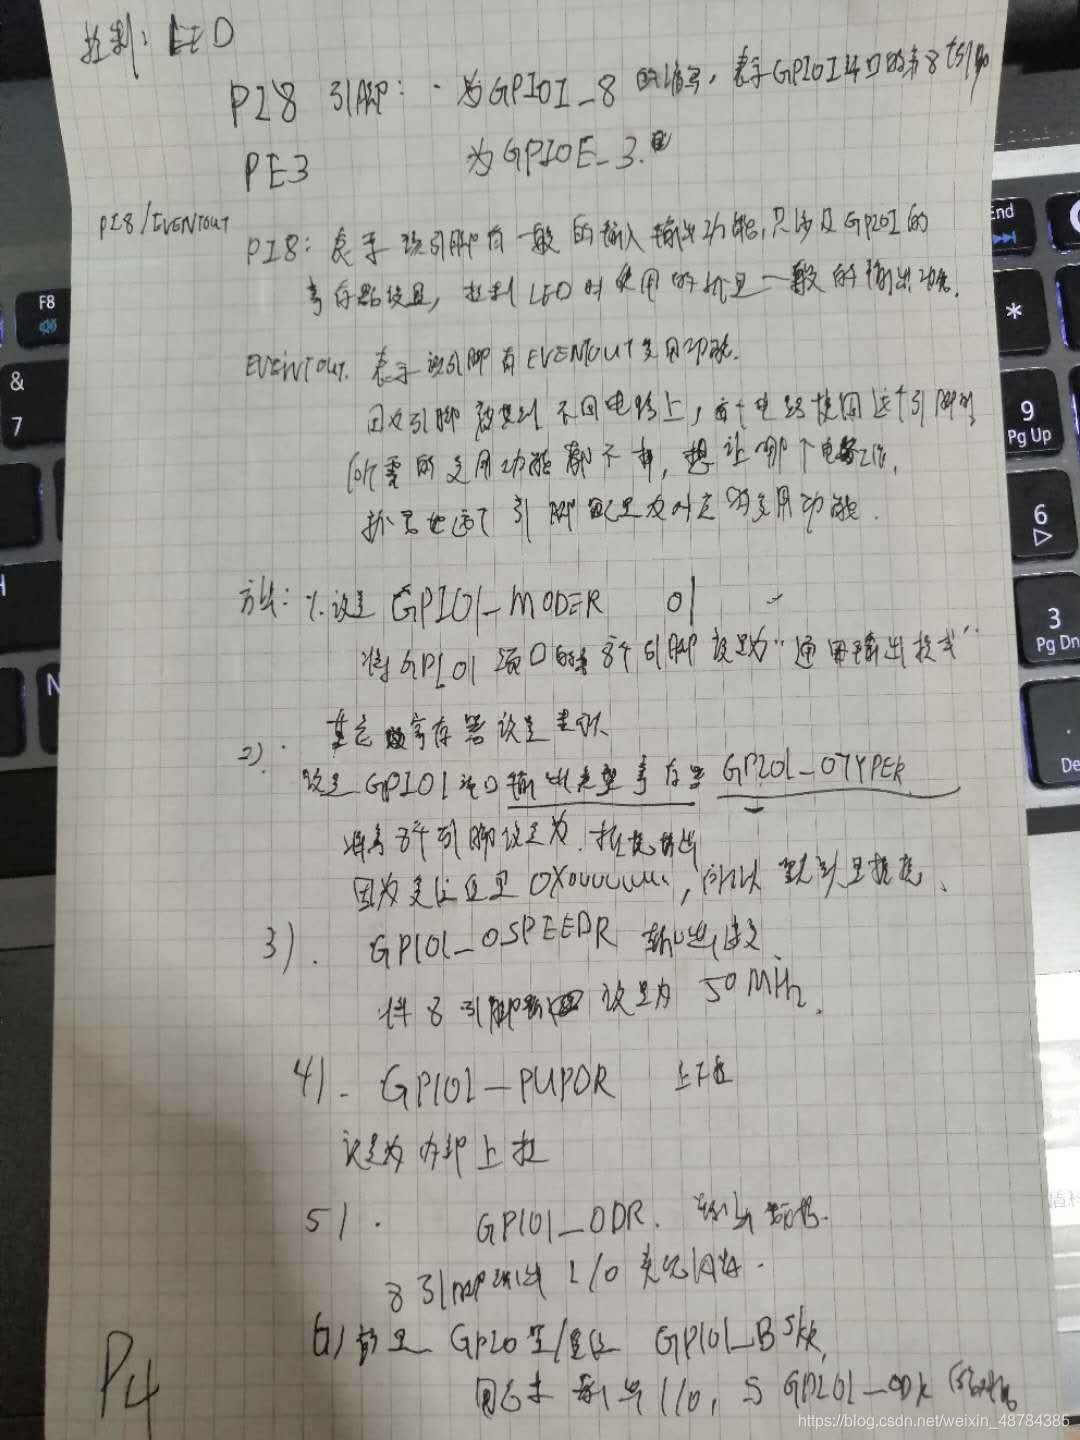 控制: LED
PI8 引脚: 为GPIOI_8 的缩写, 表示GPIOI端口的第8个引脚
PE3 为GPIOE_3.
PI8/EVENTOUT
PI8: 表示该引脚有一般的输入输出功能, 只涉及GPIOI的
寄存器设置, 控制LED时使用的就是一般的输出功能.
EVENTOUT. 表示该引脚有EVENTOUT复用功能.
因为引脚被接到不同电路上, 每个电路使用这个引脚时
所需的复用功能都不同, 想让哪个电路工作,
就需把这个引脚配置为对应的复用功能.
方法: 1. 设置 GPIOI_MODER 01
将GPIOI端口的第8个引脚设置为"通用输出模式"
2). 其它 寄存器设置类似
设置GPIOI端口输出类型寄存器 GPIOI_OTYPER
将第8个引脚设置为推挽输出
因为复位值是0X, 所以默认是推挽.
3). GPIOI_OSPEEDR 输出速度
将8引脚 设置为 50MHz.
4). GPIOI_PUPDR 上下拉
设置为内部上拉
5). GPIOI_ODR. 输出数据.
8引脚输出 1/0
6) 配置 GPIO置/复位 GPIOI_BSRR,
1/0, 与 GPIOI_ODR
P4
F8
&
7
End
*
9
Pg Up
6
3
Pg Dn
.
De
N
H
https://blog.csdn.net/weixin_48784385